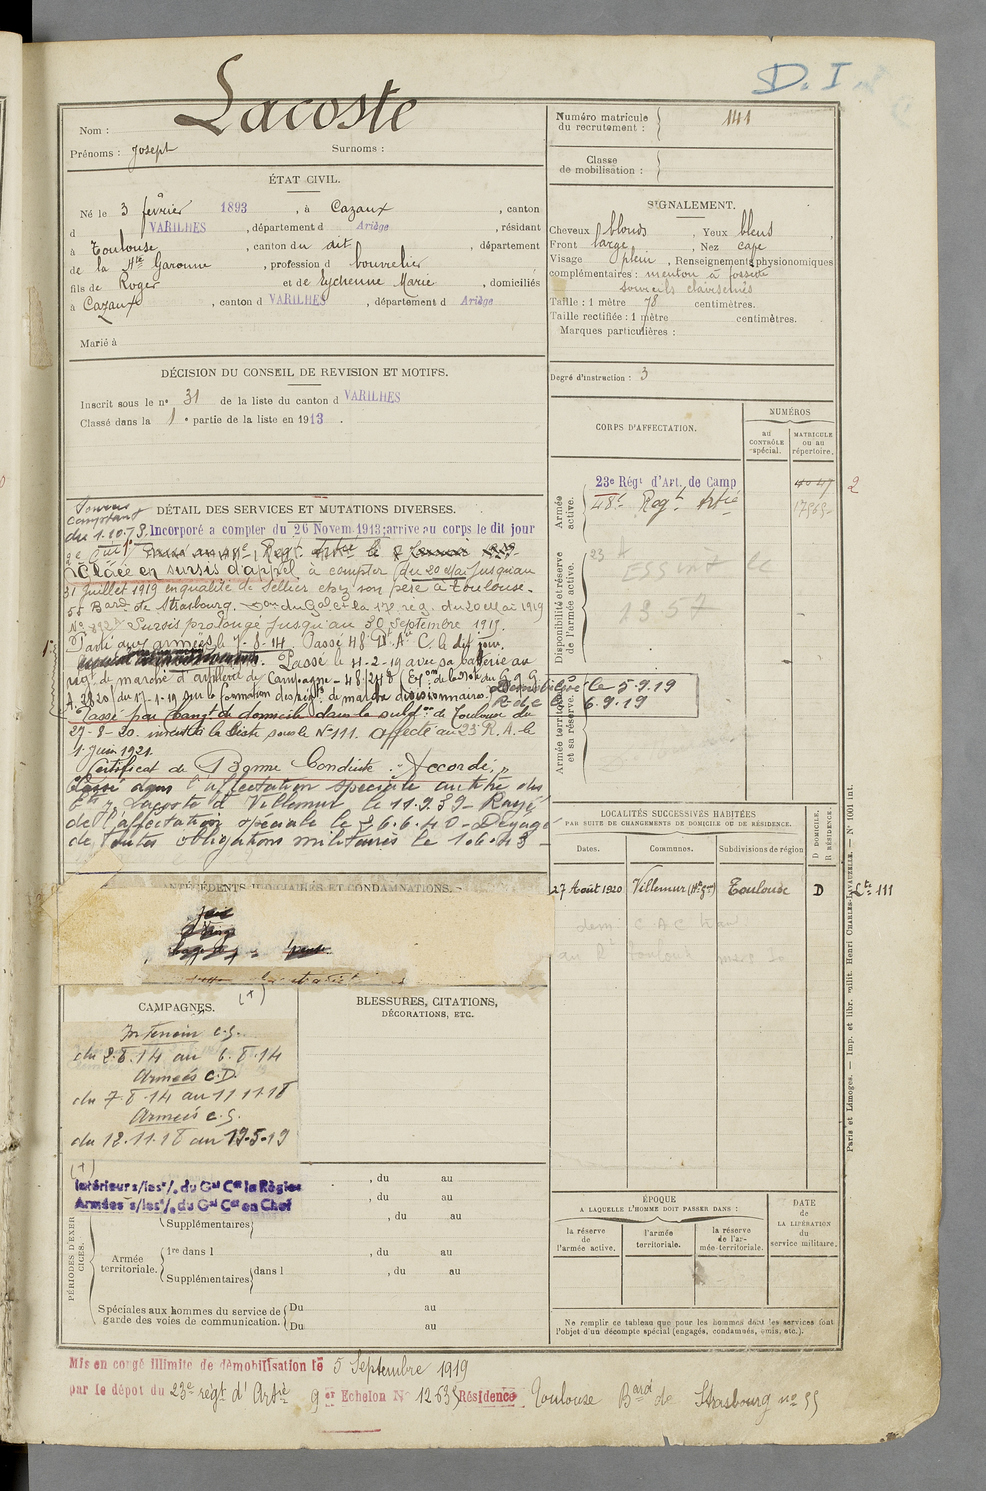 D. I
Nom : Lacoste
Prénoms : Joseph Surnoms :
Numéro matricule du recrutement : 141
Classe de mobilisation :
ÉTAT CIVIL.
Né le 3 février 1893, à Cazaux, canton
d VARILHES, département d Ariège, résidant
à Toulouse, canton du dit, département
de la Hte Garonne, profession d bourrelier
fils de Roger et de Eychenne Marie, domiciliés
à Cazaux, canton d VARILHES, département d Ariège
Marié à
SIGNALEMENT.
Cheveux blonds, Yeux bleus,
Front large, Nez cave
Visage plein, Renseignements physionomiques
complémentaires : menton à fossette
sourcils clairsemés
Taille : 1 mètre 78 centimètres.
Taille rectifiée : 1 mètre centimètres.
Marques particulières :
Degré d'instruction : 3
DÉCISION DU CONSEIL DE REVISION ET MOTIFS.
Inscrit sous le no 31 de la liste du canton d VARILHES
Classé dans la 1e partie de la liste en 1913.
CORPS D'AFFECTATION.
NUMÉROS
au CONTRÔLE spécial.
MATRICULE ou au répertoire.
Armée active.
23e Régt d'Art. de Camp 4047 2
48e Regt Artie
Disponibilité et réserve de l'armée active.
Armée territoriale et sa réserve.
DÉTAIL DES SERVICES ET MUTATIONS DIVERSES.
du 1.10.73.
Incorporé a compter du 26 Novem. 1913; arrive au corps le dit jour
Placé en sursis d'appel à compter du 20 Mai jusqu'au
31 juillet 1919 en qualité de Sellier chez son père à Toulouse.
55 Bard de Strasbourg. du Gal Ct la 17e rég. du 20 Mai 1919
Sursis prolongé jusqu'au 30 septembre 1919.
Parti aux armées le 7-8-14. Passé 48 Rt Aie C. le dit jour.
Passé le 4-2-19 avec sa batterie au
régt de marche d'artillerie de Campagne - 48/248
du 17-1-19 sur la formation des régts de marche divisionnaires.
Démobilisé le 5.9.19
R.d.c. le 6.9.19
Passé par changt de domicile dans la subdon de Toulouse du
27-8-20. inscrit à la liste sous le No 111. Affecté au 23 R.A. le
1 Juin 1921.
Certificat de Bonne Conduite "Accordé"
Classé dans l'affectation spéciale au titre des
Ets Lacoste à Villemur le 11.9.39 - Rayé
de l'affectation spéciale le 26.6.40 - Dégagé
de toutes obligations militaires le 1.6.43 -
ANTÉCÉDENTS JUDICIAIRES ET CONDAMNATIONS.
LOCALITÉS SUCCESSIVES HABITÉES
PAR SUITE DE CHANGEMENTS DE DOMICILE OU DE RÉSIDENCE.
Dates. Communes. Subdivisions de région D DOMICILE. R RÉSIDENCE.
27 Août 1920 Villemur (Hte Gne) Toulouse D Lte 111
CAMPAGNES. (+)
Intérieur c.s.
du 2.8.14 au 6.8.14
Armées C.D.
du 7-8-14 au 11 11-18
Armées c.s.
du 12.11.18 au 19.5.19
BLESSURES, CITATIONS,
DÉCORATIONS, ETC.
(+)
Intérieur s/les o/. du Gal Ct la Région
Armées s/les o/. du Gal Ct en Chef
PÉRIODES D'EXERCICES.
, du au
, du au
Supplémentaires , du au
Armée territoriale.
1re dans l , du au
Supplémentaires dans l , du au
Spéciales aux hommes du service de garde des voies de communication.
Du au
Du au
ÉPOQUE
A LAQUELLE L'HOMME DOIT PASSER DANS :
la réserve de l'armée active.
l'armée territoriale.
la réserve de l'armée territoriale.
DATE de LA LIBÉRATION du service militaire.
Ne remplir ce tableau que pour les hommes dont les services font
l'objet d'un décompte spécial (engagés, condamnés, omis, etc.).
Paris et Limoges. — Imp. et libr. milit. Henri CHARLES-LAVAUZELLE. — No 1001 int.
Mis en congé illimité de démobilisation le 5 Septembre 1919
par le dépot du 23e régt d'Artie 9 er Echelon No 12635 Résidence Toulouse Bard de Strasbourg no 55